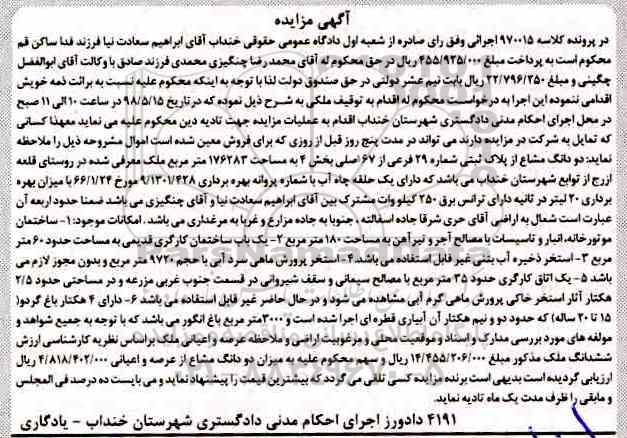 آگهی مزایده
در پرونده کلاسه ۹۷۰۰۱۵ اجرائی وفق رای صادره از شعبه اول دادگاه عمومی حقوقی خنداب آقای ابراهیم سعادت نیا فرزند فدا ساکن قم
محکوم است به پرداخت مبلغ ۴۵۵/۹۳۵/۰۰۰ ریال در حق محکوم له آقای محمد رضا چنگیزی محمدی فرزند صادق با وکالت آقای ابوالفضل
چگینی و مبلغ ۲۲/۷۹۶/۲۵۰ ریال بابت نیم عشر دولتی در حق صندوق دولت لذا با توجه به اینکه محکوم علیه نسبت به برائت ذمه خویش
اقدامی ننموده این اجرا به درخواست محکوم له اقدام به توقیف ملکی به شرح ذیل نموده که در تاریخ ۹۸/۵/۱۵ در ساعت ۱۰ الی ۱۱ صبح
در محل اجرای احکام مدنی دادگستری شهرستان خنداب اقدام به عملیات مزایده جهت تادیه دین محکوم علیه می نماید معهذا کسانی
که تمایل به شرکت در مزایده دارند می تواند در مدت پنج روز قبل از روزی که برای فروش معین شده است اموال مشروحه ذیل را ملاحظه
نماید: دو دانگ مشاع از پلاک ثبتی شماره ۲۹ فرعی از ۶۷ اصلی بخش ۴ به مساحت ۱۷۶۲۸۳ متر مربع ملک معرفی شده در روستای قلعه
ازرج از توابع شهرستان خنداب می باشد که دارای یک حلقه چاه آب با شماره پروانه بهره برداری ۹/۱۳۰۱/۴۲۸ مورخ ۶۶/۱/۲۴ با میزان بهره
برداری ۲۰ لیتر در ثانیه دارای ترانس برق ۲۵۰ کیلو وات مشترک بین آقای ابراهیم سعادت نیا و آقای چنگیزی می باشد ضمنا حدود اربعه آن
عبارت است شمال به اراضی آقای حری شرقا جاده اسفالته ، جنوبا به جاده مزارع و غربا به مرغداری می باشد . امکانات موجود: ۱- ساختمان
موتورخانه، انبار و تاسیسات با مصالح آجر و تیرآهن به مساحت ۱۸۰ متر مربع ۲- یک باب ساختمان کارگری قدیمی به مساحت حدود ۶۰ متر
مربع ۳- استخر ذخیره آب بتنی غیر قابل استفاده می باشد. ۴- استخر پرورش ماهی سرد آبی با حجم ۹۷۲۰ متر مربع و بدون مجوز لازم می
باشد ۵- یک اتاق کارگری حدود ۳۵ متر مربع با مصالح سیمانی و سقف شیروانی در قسمت جنوب غربی مزرعه و در مساحتی حدود ۲/۵
هکتار آثار استخر خاکی پرورش ماهی گرم آبی مشاهده می شود و در حال حاضر غیر قابل استفاده می باشد ۶- دارای ۴ هکتار باغ گردو(
۱۵ تا ۲۰ ساله) که حدود دو و نیم هکتار آن آبیاری قطره ای اجرا شده است و ۳۰۰۰ متر مربع باغ انگور می باشد که با توجه به جمیع شواهد و
مولفه های مورد بررسی مدارک و اسناد و موقعیت محلی و مرغوبیت اراضی و ملاحظه عرصه و اعیانی ملک براساس نظریه کارشناسی ارزش
ششدانگ ملک مذکور مبلغ ۱۴/۴۵۵/۲۰۶/۰۰۰ ریال و سهم محکوم علیه به میزان دو دانگ مشاع از عرصه و اعیانی ۴/۸۱۸/۴۰۲/۰۰۰ ریال
ارزیابی گردیده است بدیهی است برنده مزایده کسی تلقی می گردد که بیشترین قیمت را پیشنهاد نماید و می بایست ده درصد فی المجلس
و مابقی را ظرف مدت یک ماه تادیه نماید.
۴۱۹۱ دادورز اجرای احکام مدنی دادگستری شهرستان خنداب - یادگاری